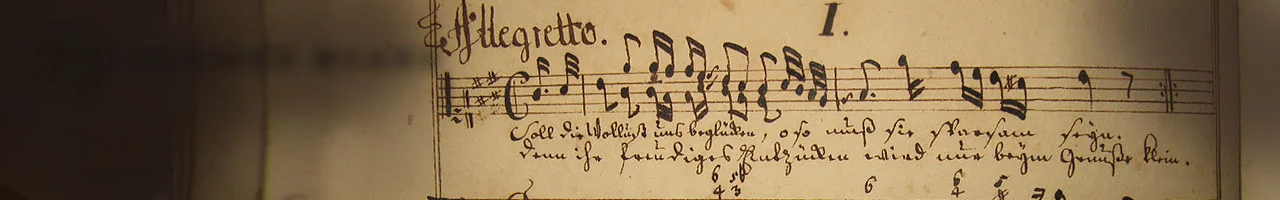 Allegretto. 1.
Soll die Wollust uns beglücken, o so muß sie sparsam seyn.
denn ihr freudiges Entzücken wird nur beym Genuße klein.
6 5 6 6 5
4 3 4 #